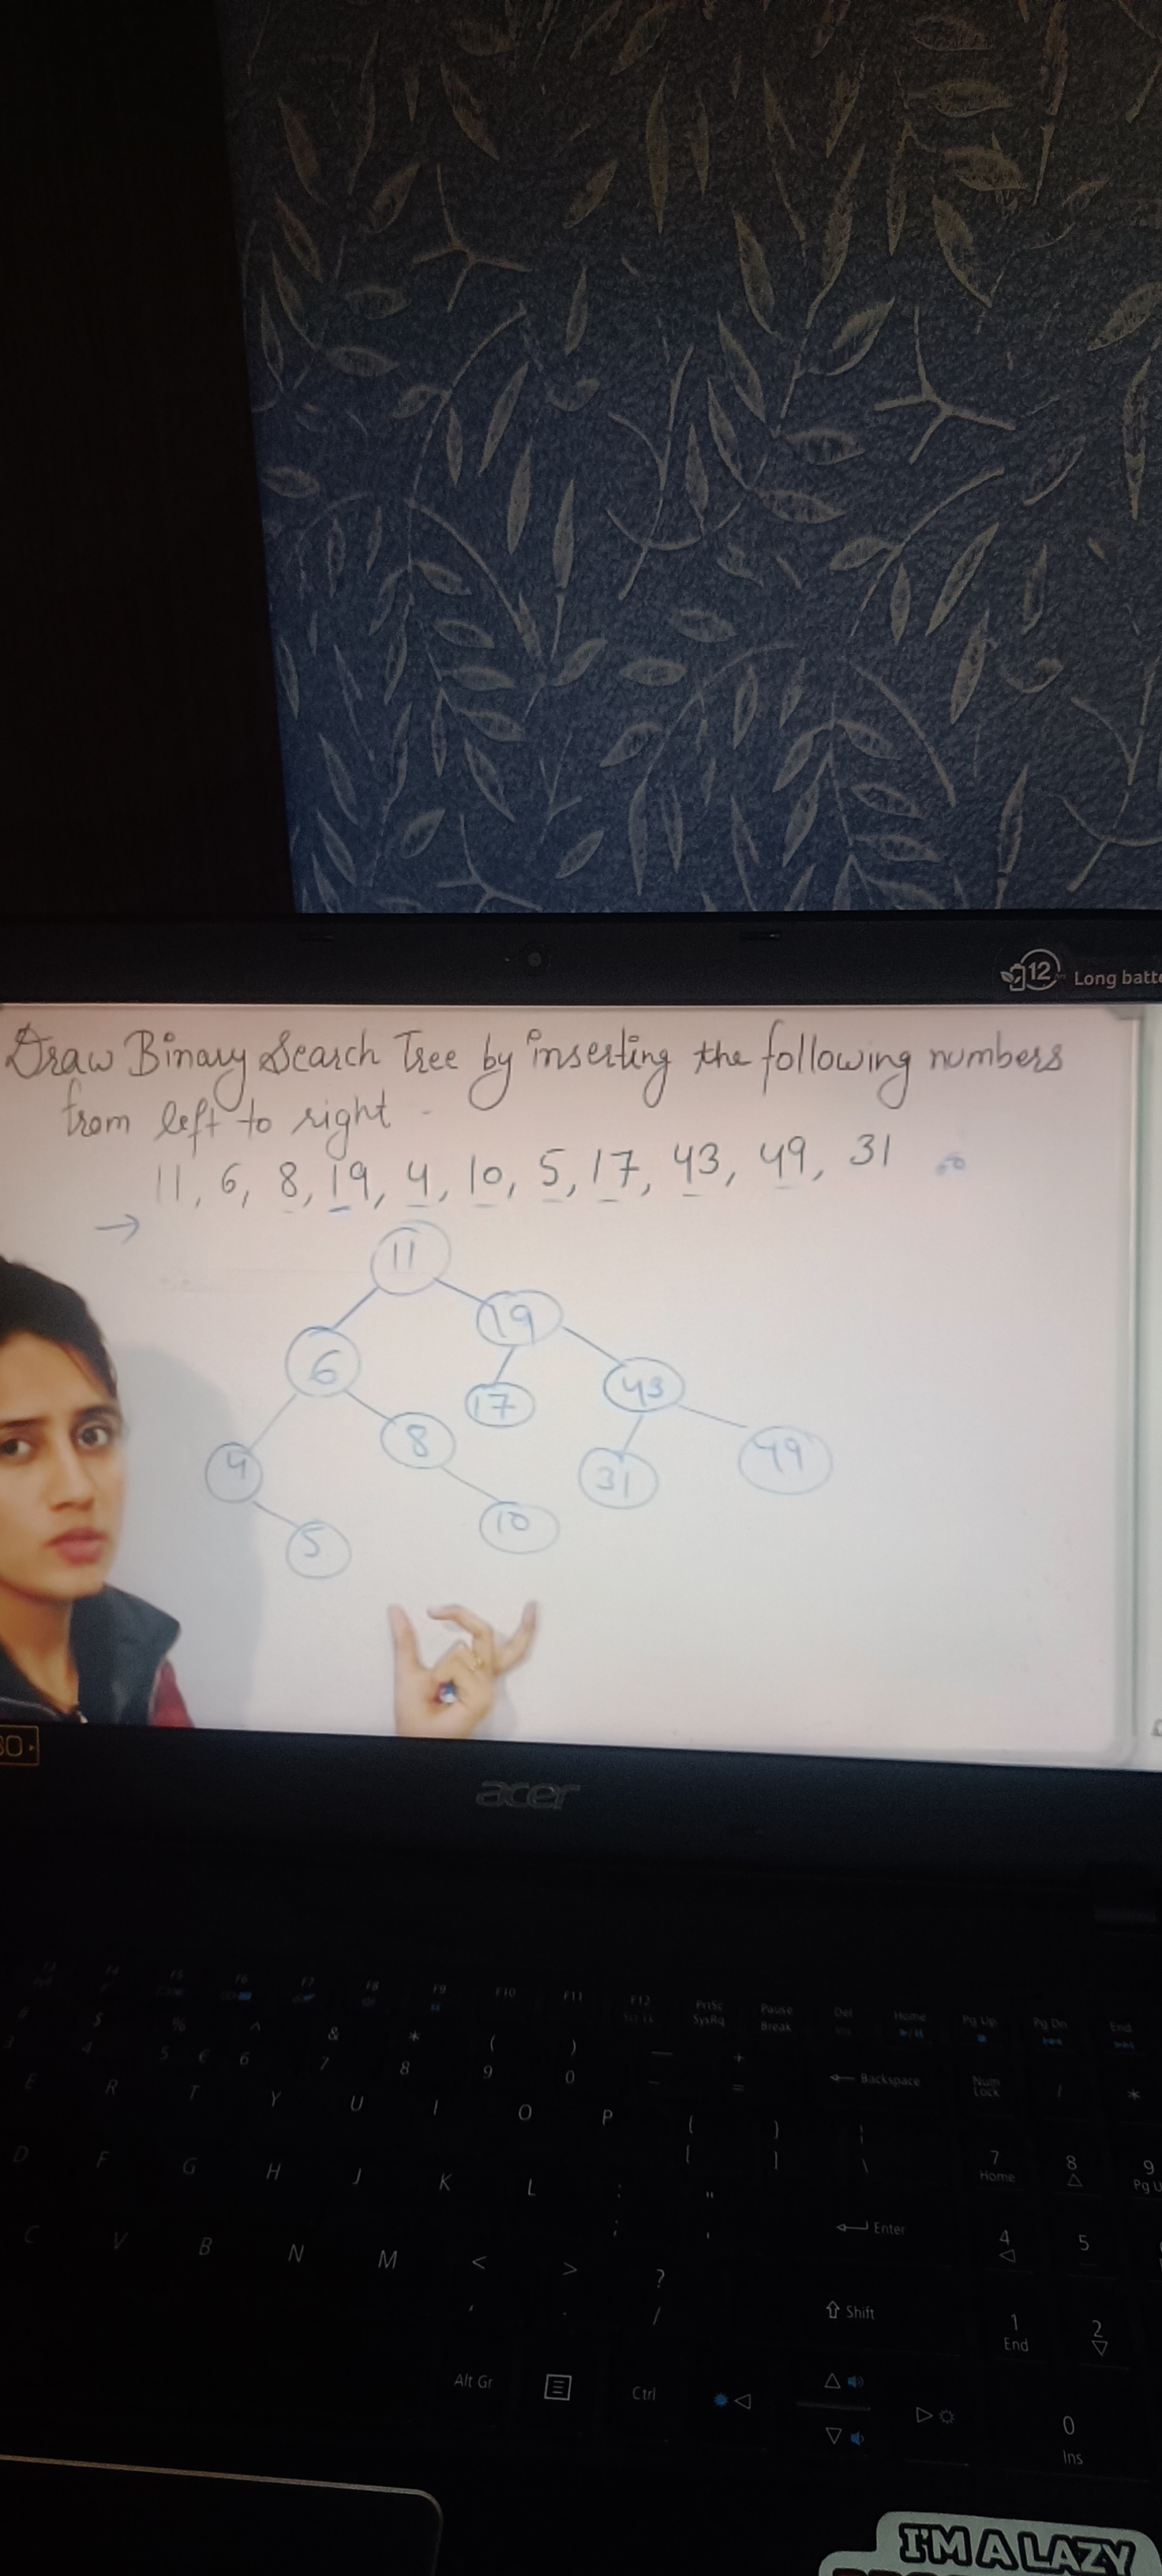 12 Long batte
Draw Binary Search Tree by inserting the following numbers
from left to right -
11, 6, 8, 19, 4, 10, 5, 17, 43, 49, 31
→
11
19
6
17
43
8
4
31
49
10
5
acer
F5 F6 F7 F8 F9 F10 F11 F12 PrtSc SysRq Pause Break Del Home Pg Up Pg Dn End
$ % ^ & * ( ) — +
3 4 5 € 6 7 8 9 0 - = ← Backspace Num Lock / *
E R T Y U I O P { [ } ] | \ 7 Home 8 9 Pg U
D F G H J K L : ; " ' Enter 4 5
C V B N M < , > . ? / Shift 1 End 2
Alt Gr Ctrl 0 Ins
I'M A LAZY